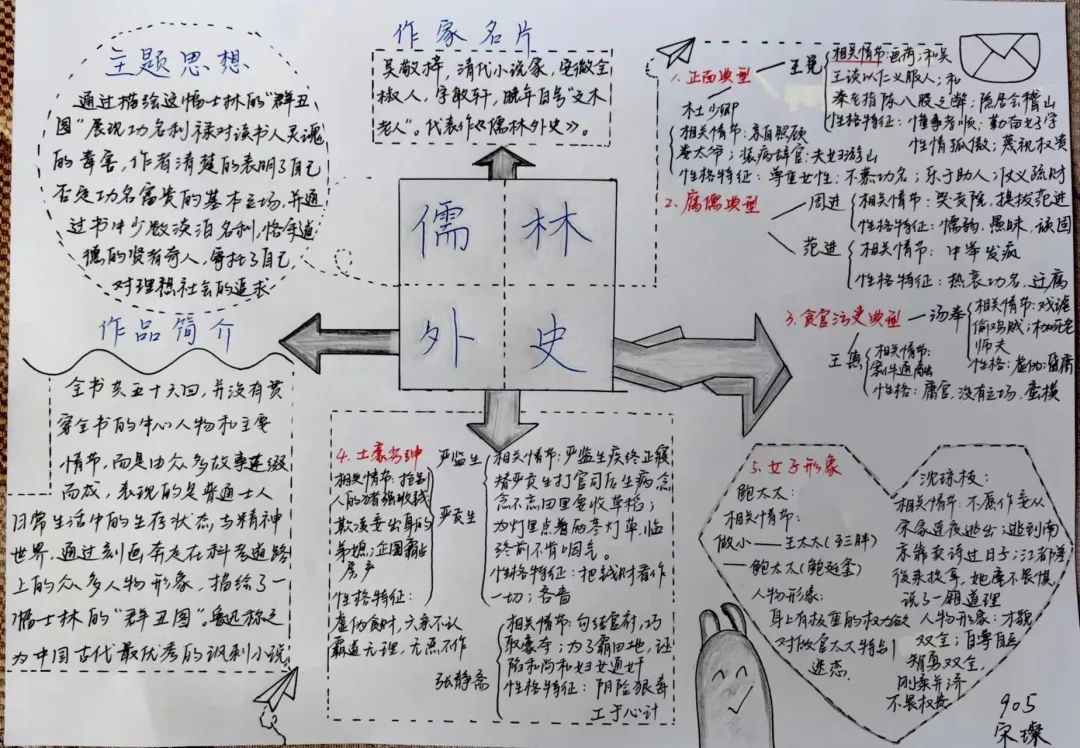 主题思想
通过描绘这幅士林的“群丑
图”展现功名利禄对读书人灵魂
的毒害,作者清楚的表明了自己
否定功名富贵的基本立场,并通
过书中少数淡泊名利,恪守道
德的贤者奇人,寄托了自己
对理想社会的追求
作家名片
吴敬梓,清代小说家,安徽全
椒人,字敏轩,晚年自号“文木
老人”。代表作《儒林外史》。
儒林
外史
作品简介
全书共五十六回,并没有贯
穿全书的中心人物和主要
情节,而是由众多故事连缀
而成,表现的是普通士人
日常生活中的生存状态与精神
世界,通过刻画奔走在科考道路
上的众多人物形象,描绘了一
幅士林的“群丑图”。鲁迅称之
为中国古代最优秀的讽刺小说
1.正面典型
王冕
相关情节:画荷;和吴
王谈以仁义服人;和
秦老指陈八股之弊;隐居会稽山
性格特征:懂事孝顺;勤奋好学
性情孤傲;蔑视权贵
杜少卿
相关情节:亲自照顾
娄太爷;装病辞官;夫妇游山
性格特征:尊重女性;不慕功名;乐于助人;仗义疏财
2.腐儒典型
周进
相关情节:哭贡院,提拔范进
性格特征:懦弱,愚昧,顽固
范进
相关情节:中举发疯
性格特征:热衷功名,迂腐
3.贪官污吏典型
汤奉
相关情节:戏谑
偷鸡贼;枷死老
师夫
性格:虚伪;昏庸
王惠
相关情节:
案件通融
性格:腐官,没有立场,蛮横
4.土豪劣绅
严监生
相关情节:严监生疾终正寝
替严贡生打官司后生病,念
念不忘田里要收草稻;
为灯里点着两茎灯草,临
终前不肯咽气。
性格特征:把钱财看作
一切;吝啬
严贡生
相关情节:
欺凌妾出身的
弟媳;企图霸占
房产
性格特征:
虚伪贪财,六亲不认
霸道无理,无恶不作
张静斋
相关情节:勾结官府,巧
取豪夺;为了霸田地,诬
陷和尚和妇女通奸
性格特征:阴险狠毒
工于心计
5.女子形象
鲍太太:
相关情节:
做小——王太太(王三胖)
——鲍太太(鲍廷玺)
人物形象:
身上有极重的权力欲
对做官太太特别
迷恋
沈琼枝:
相关情节:不愿作妾从
宋家连夜逃出;逃到南
京靠卖诗过日子;江都差
役来拔拿,她毫不畏惧,
说了一番道理
人物形象:才貌
双全;自尊自立
智勇双全,
刚柔并济
不畏权贵
905
宋璨